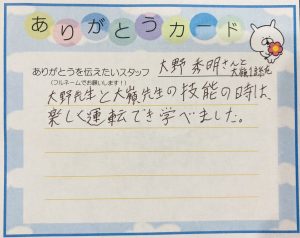 ありがとうカード
ありがとうを伝えたいスタッフ
(フルネームでお願いします!!)
大野 秀明さんと
大嶺
大野先生と大嶺先生の技能の時は、
楽しく運転でき学べました。